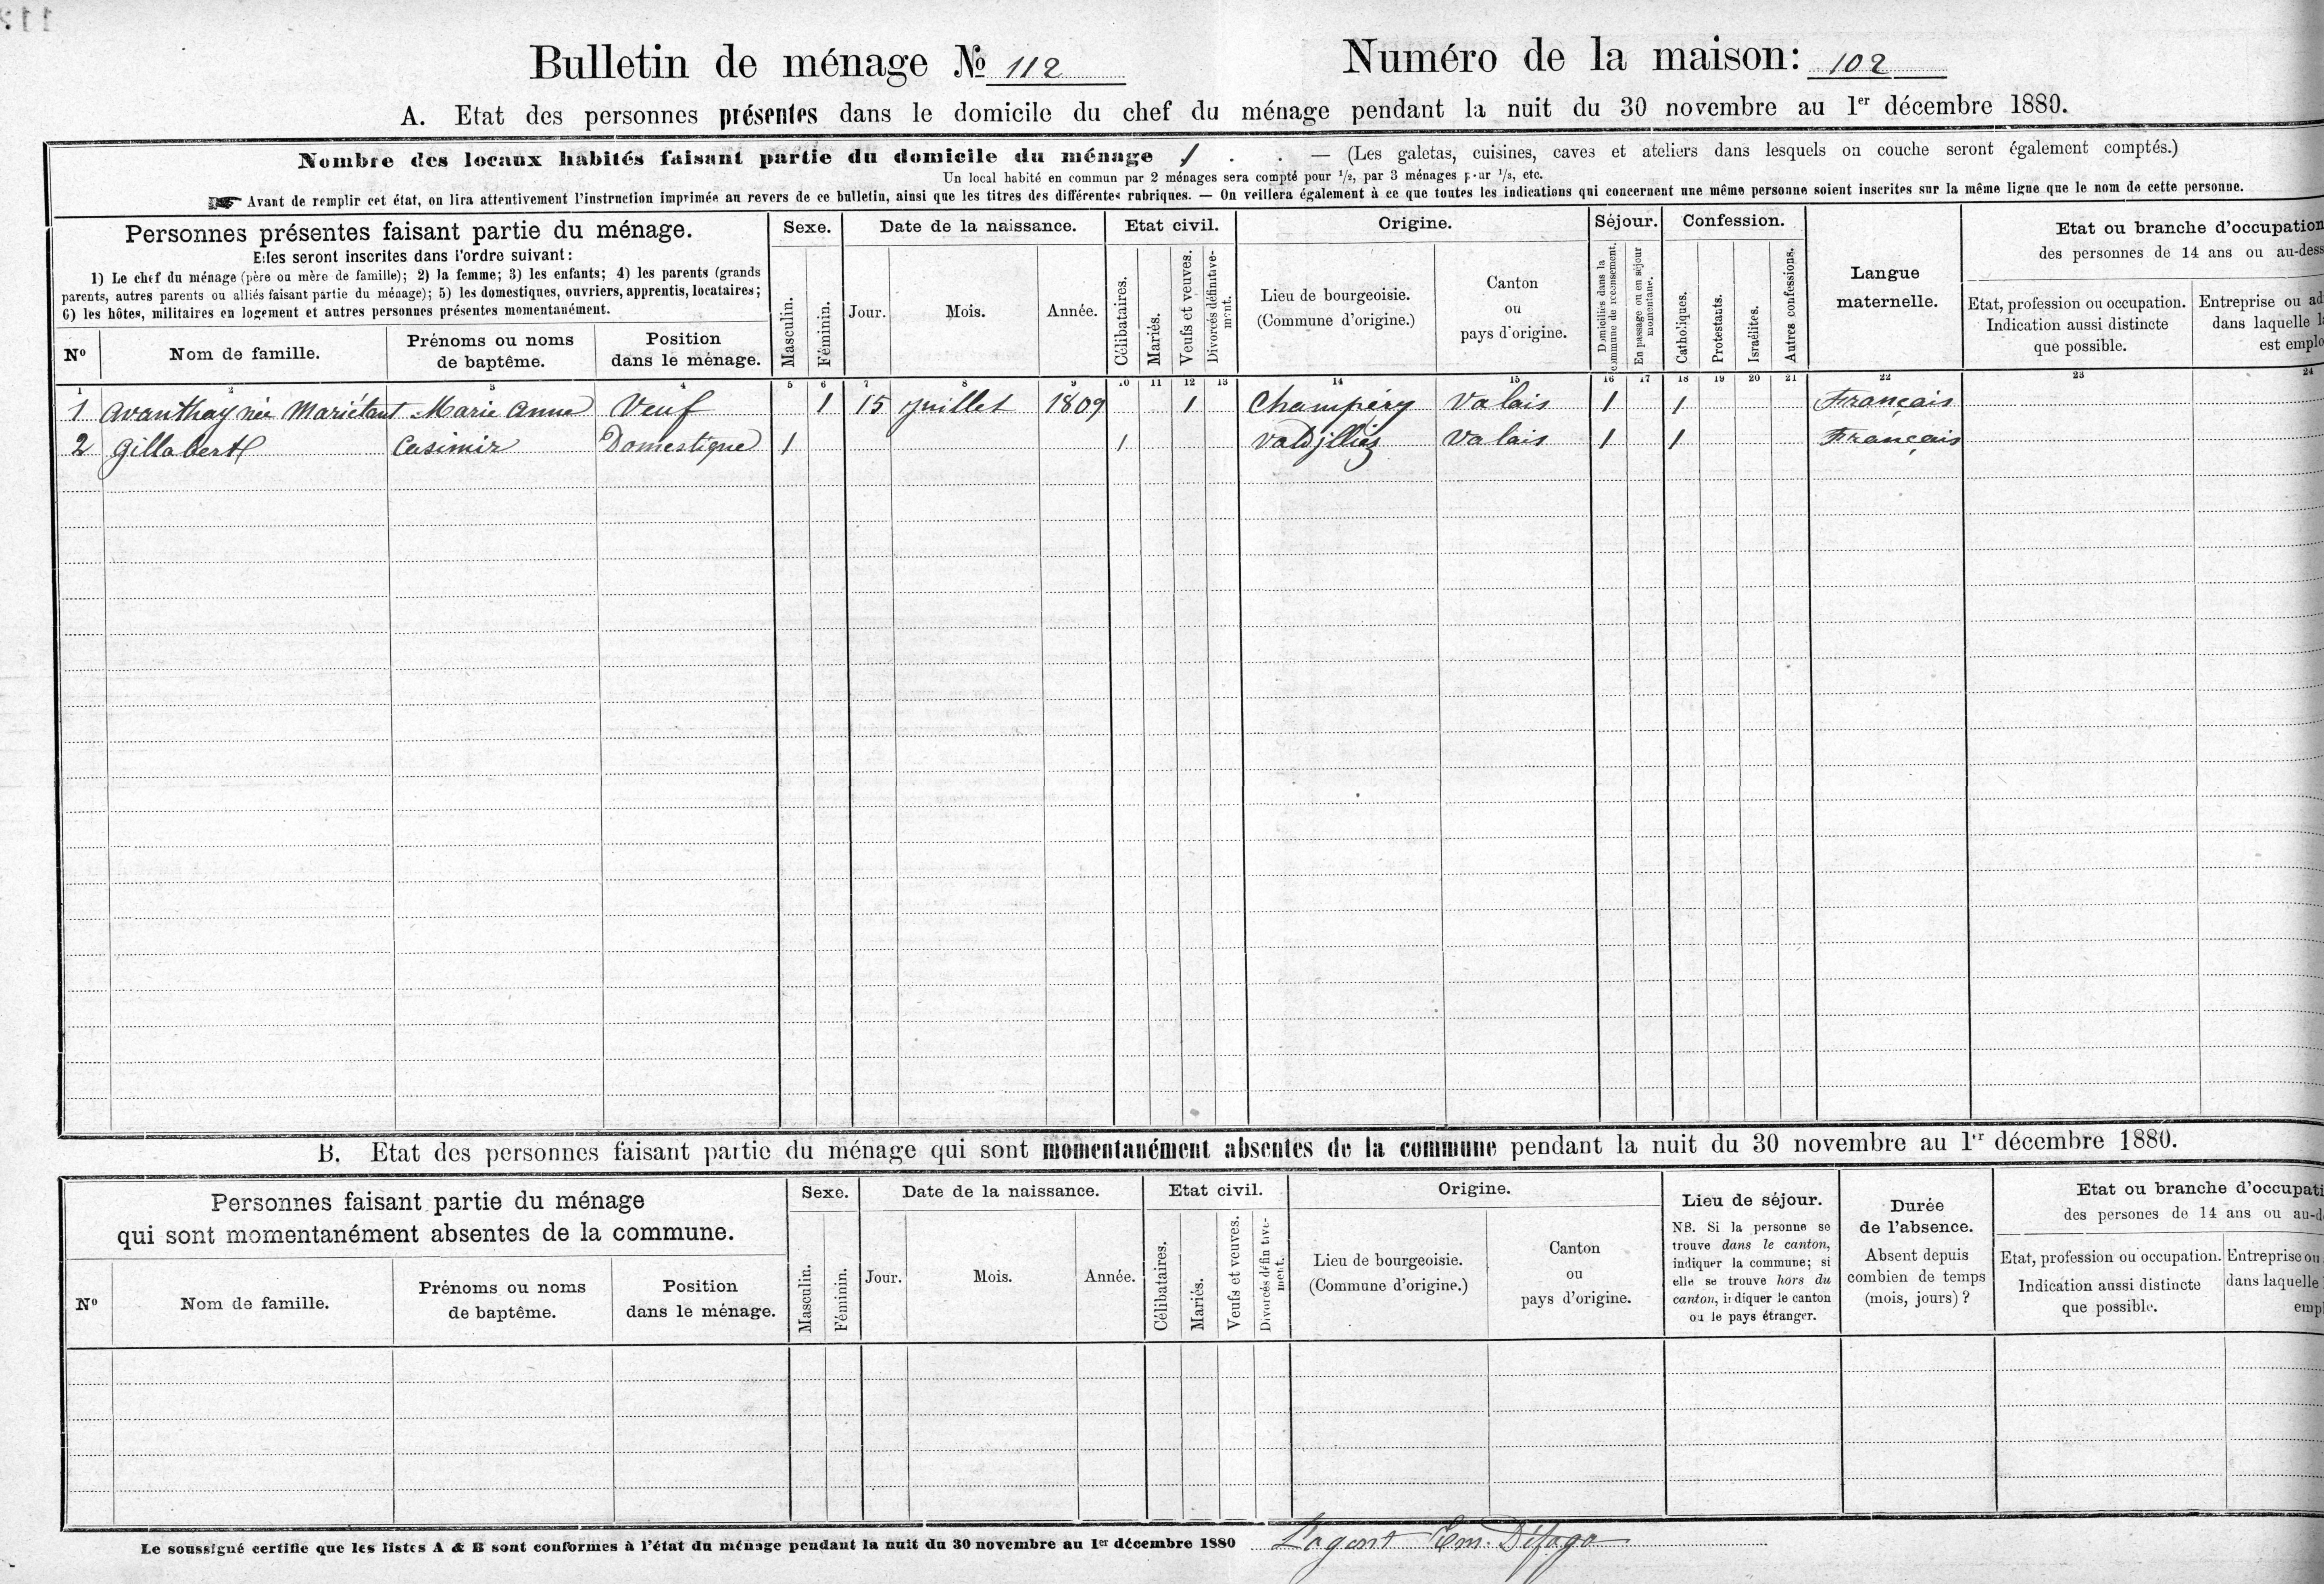 Bulletin de ménage № 112
Numéro de la maison: 102
A. Etat des personnes présentes dans le domicile du chef du ménage pendant la nuit du 30 novembre au 1er décembre 1880.
Nombre des locaux habités faisant partie du domicile du ménage 1 . . — (Les galetas, cuisines, caves et ateliers dans lesquels on couche seront également comptés.)
Un local habité en commun par 2 ménages sera compté pour 1/2, par 3 ménages pour 1/3, etc.
Avant de remplir cet état, on lira attentivement l'instruction imprimée au revers de ce bulletin, ainsi que les titres des différentes rubriques. — On veillera également à ce que toutes les indications qui concernent une même personne soient inscrites sur la même ligne que le nom de cette personne.
Personnes présentes faisant partie du ménage.
Elles seront inscrites dans l'ordre suivant:
1) Le chef du ménage (père ou mère de famille); 2) la femme; 3) les enfants; 4) les parents (grands
parents, autres parents ou alliés faisant partie du ménage); 5) les domestiques, ouvriers, apprentis, locataires;
6) les hôtes, militaires en logement et autres personnes présentes momentanément.
No
Nom de famille.
Prénoms ou noms
de baptême.
Position
dans le ménage.
Sexe.
Masculin.
Féminin.
Date de la naissance.
Jour.
Mois.
Année.
Etat civil.
Célibataires.
Mariés.
Veufs et veuves.
Divorcés définitive-
ment.
Origine.
Lieu de bourgeoisie.
(Commune d'origine.)
Canton
ou
pays d'origine.
Séjour.
Domiciliés dans la
commune de recensement.
En passage ou en séjour
momentané.
Confession.
Catholiques.
Protestants.
Israélites.
Autres confessions.
Langue
maternelle.
Etat ou branche d'occupation
des personnes de 14 ans ou au-dess
Etat, profession ou occupation.
Indication aussi distincte
que possible.
Entreprise ou ad
dans laquelle l
est emplo
1 2 3 4 5 6 7 8 9 10 11 12 13 14 15 16 17 18 19 20 21 22 23 24
1 Avanthay née Mariétant Marie Anne Veuf 1 15 Juillet 1809 1 Champéry Valais 1 1 Français
2 Gillabert Casimir Domestique 1 1 Valdjlliez Valais 1 1 Français
B. Etat des personnes faisant partie du ménage qui sont momentanément absentes de la commune pendant la nuit du 30 novembre au 1er décembre 1880.
Personnes faisant partie du ménage
qui sont momentanément absentes de la commune.
No
Nom de famille.
Prénoms ou noms
de baptême.
Position
dans le ménage.
Sexe.
Masculin.
Féminin.
Date de la naissance.
Jour.
Mois.
Année.
Etat civil.
Célibataires.
Mariés.
Veufs et veuves.
Divorcés définitive-
ment.
Origine.
Lieu de bourgeoisie.
(Commune d'origine.)
Canton
ou
pays d'origine.
Lieu de séjour.
NB. Si la personne se
trouve dans le canton,
indiquer la commune; si
elle se trouve hors du
canton, indiquer le canton
ou le pays étranger.
Durée
de l'absence.
Absent depuis
combien de temps
(mois, jours)?
Etat ou branche d'occupati
des persones de 14 ans ou au-d
Etat, profession ou occupation.
Indication aussi distincte
que possible.
Entreprise ou
dans laquelle
empl
Le soussigné certifie que les listes A & B sont conformes à l'état du ménage pendant la nuit du 30 novembre au 1er décembre 1880 L'agent Em. Défago